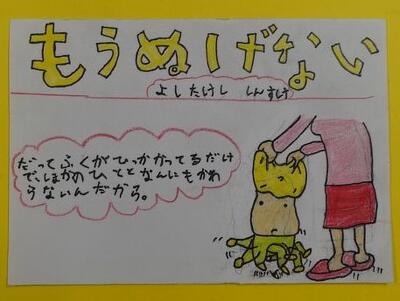 もうぬげない
よしたけし しんすけ
だってふくがひっかかってるだけ
で、ほかのひととなんにもかわ
らないんだから。